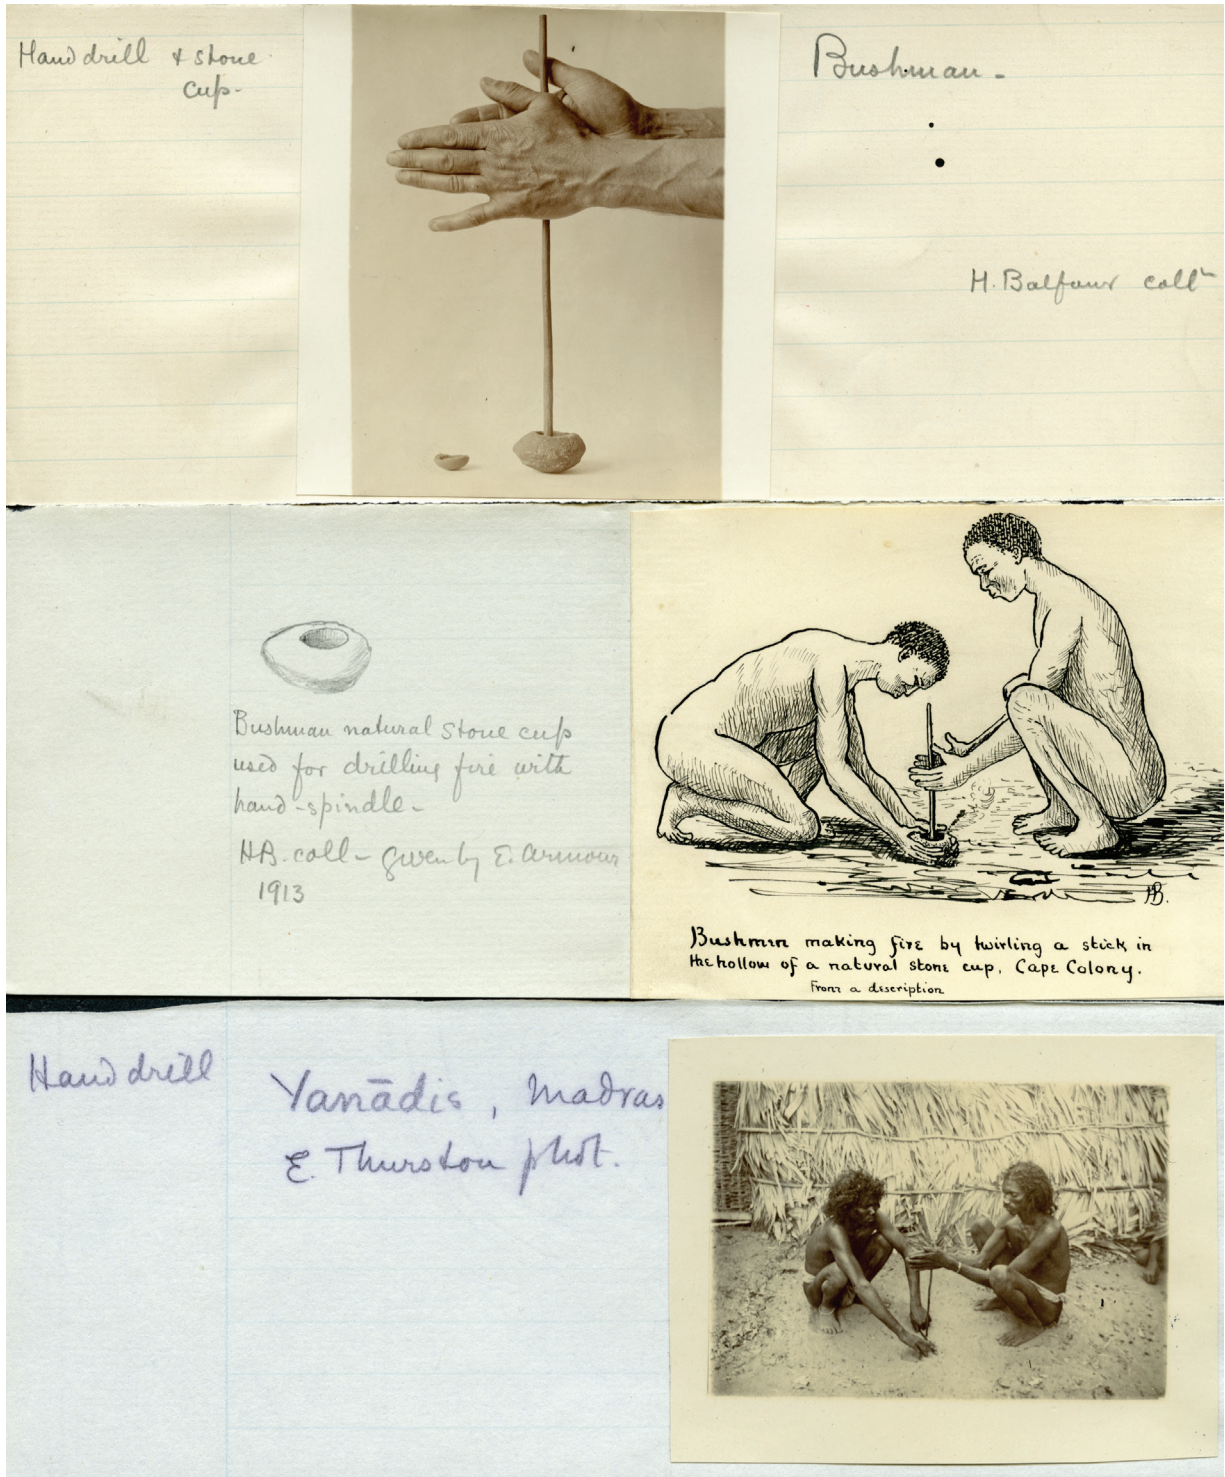 Hand drill & stone
cup-
Bushman-
H. Balfour collⁿ
Bushman natural stone cup
used for drilling fire with
hand-spindle-
H.B. coll- given by E. Armour
1913
HB.
Bushmen making fire by twirling a stick in
the hollow of a natural stone cup, Cape Colony.
From a description
Hand drill
Yanādis, Madras
E. Thurston phot.